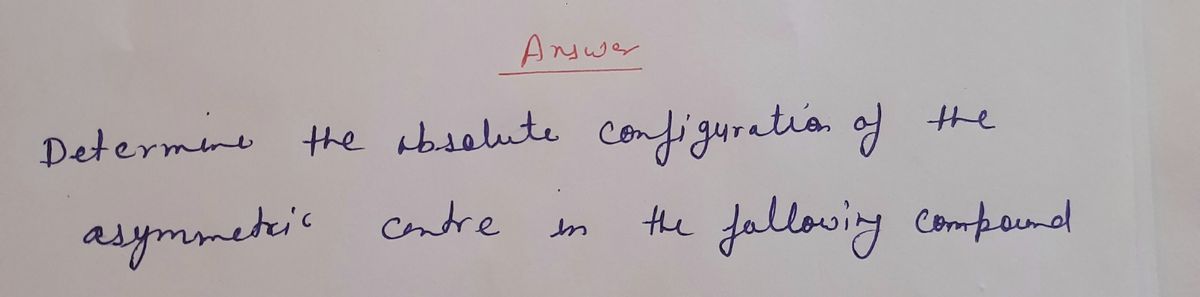 Answer
Determine the absolute configuration of the
asymmetric centre in the following compound